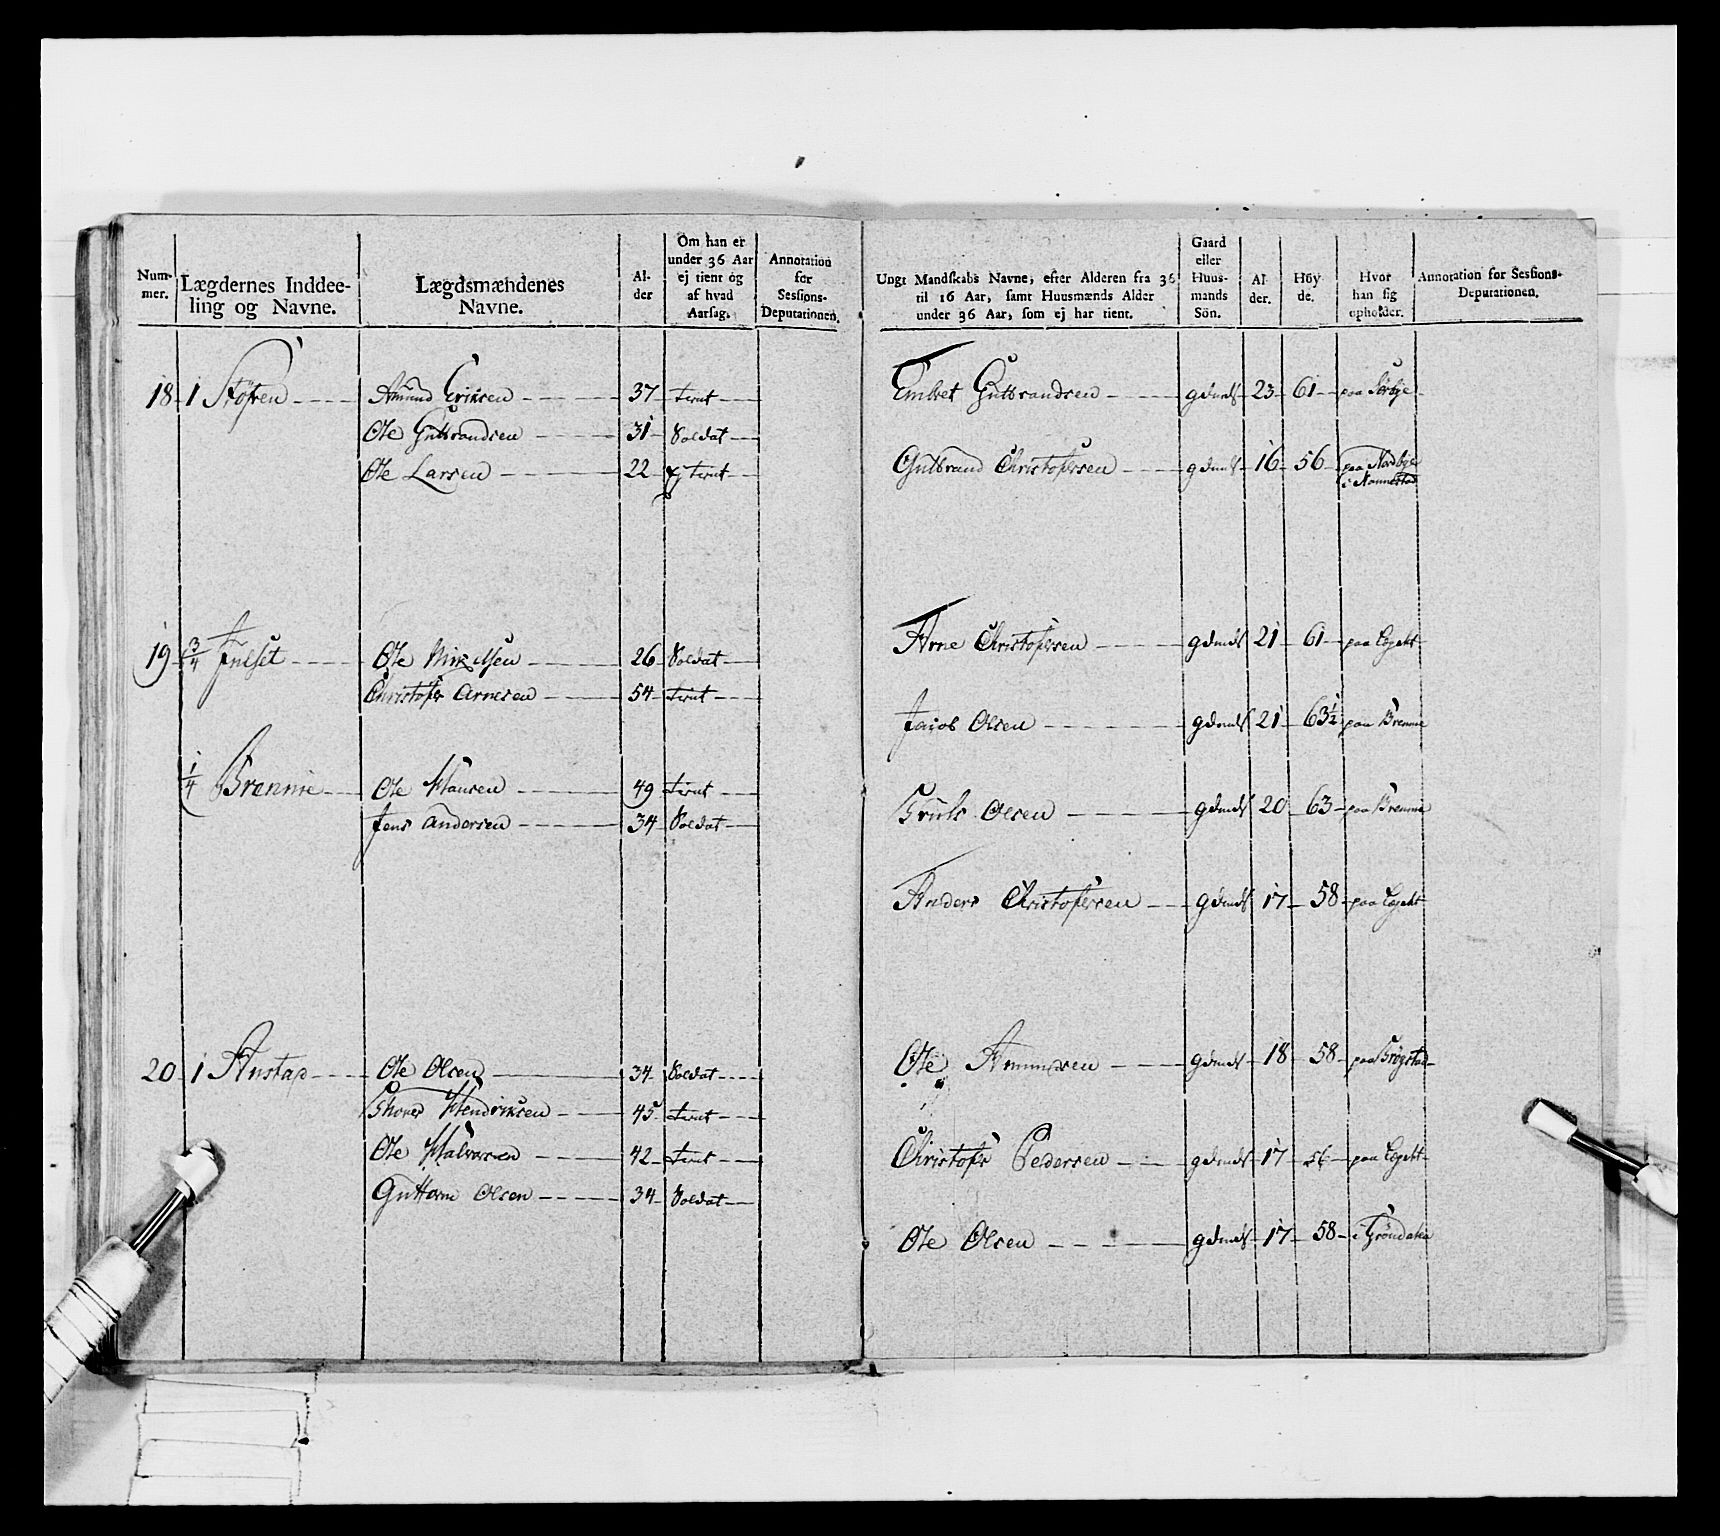 Num-
mer.
Lægdernes Inddee-
ling og Navne.
Lægdsmændenes
Navne.
Al-
der
Om han er
under 36 Aar
ej tient og
af hvad
Aarsag.
Annotation
for
Sessions-
Deputationen.
18 1 Stöfren Amund Ericksen 37 tient
Ole Gulbrandsen 31 Soldat
Ole Larsen 22 Ej tient
19 3/4 Julset Ole Mickelsen 26 Soldat
Christofr Arnesen 54 tient
1/4 Brennie Ole Hansen 49 tient
Jens Andersen 34 Soldat
20 1 Anstad Ole Olsen 34 Soldat
Hendriksen 45 tient
Ole Halvorsen 42 tient
Guttorm Olsen 34 Soldat
Ungt Mandskabs Navne, efter Alderen fra 36
til 16 Aar, samt Huusmænds Alder
under 36 Aar, som ej har tient.
Gaard
eller
Huus-
mands
Sön.
Al
der.
Höy
de.
Hvor
han sig
opholder.
Annotation for Sessions-
Deputationen.
Embret Gulbrandsen gdmds 23 61 paa
Gulbrand Christofersen gdmds 16 56 paa Nordbye
i Nannestad
Arne Christofersen gdmds 21 61 paa Lægdet
Jacob Olsen gdmds 21 63 1/2 paa Brennie
Truls Olsen gdmds 20 63 paa Brennie
Anders Christofersen gdmds 17 58 paa Lægdet
Ole Ammundsen gdmds 18 58 paa
Christofr Pedersen gdmds 17 56 paa Lægdet
Ole Olsen gdmds 17 58 i Gröndalen